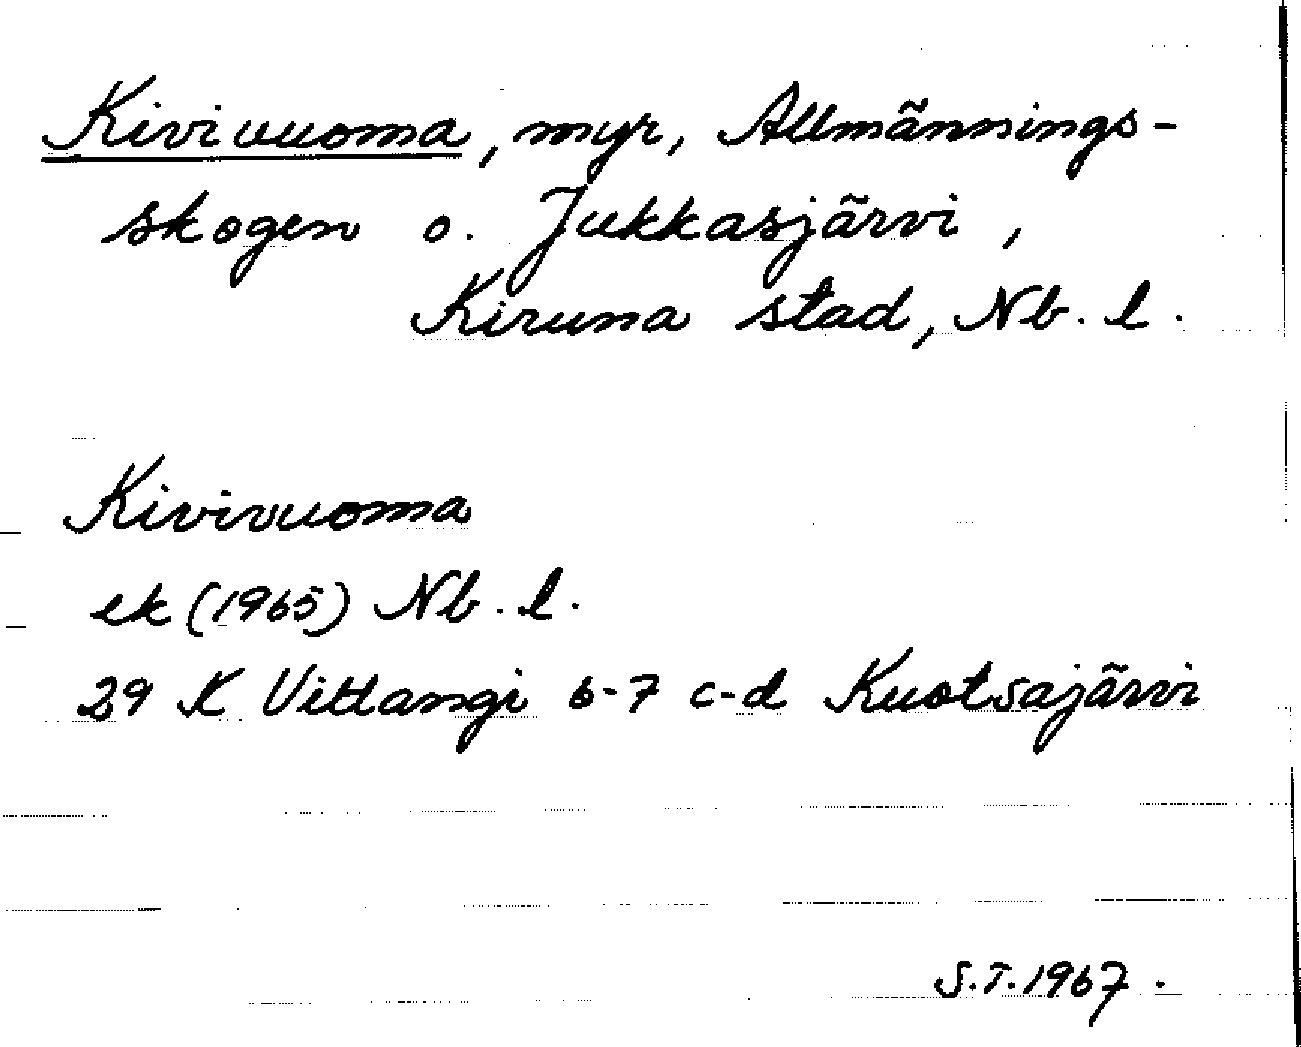 Kivivuoma, myr, Allmännings-
skogen o. Jukkasjärvi,
Kiruna stad, Nb. l.
Kivivuoma
ek (1965) Nb. l.
29 K Vittangi 6-7 c-d Kuotsajärvi
S.T. 1967.